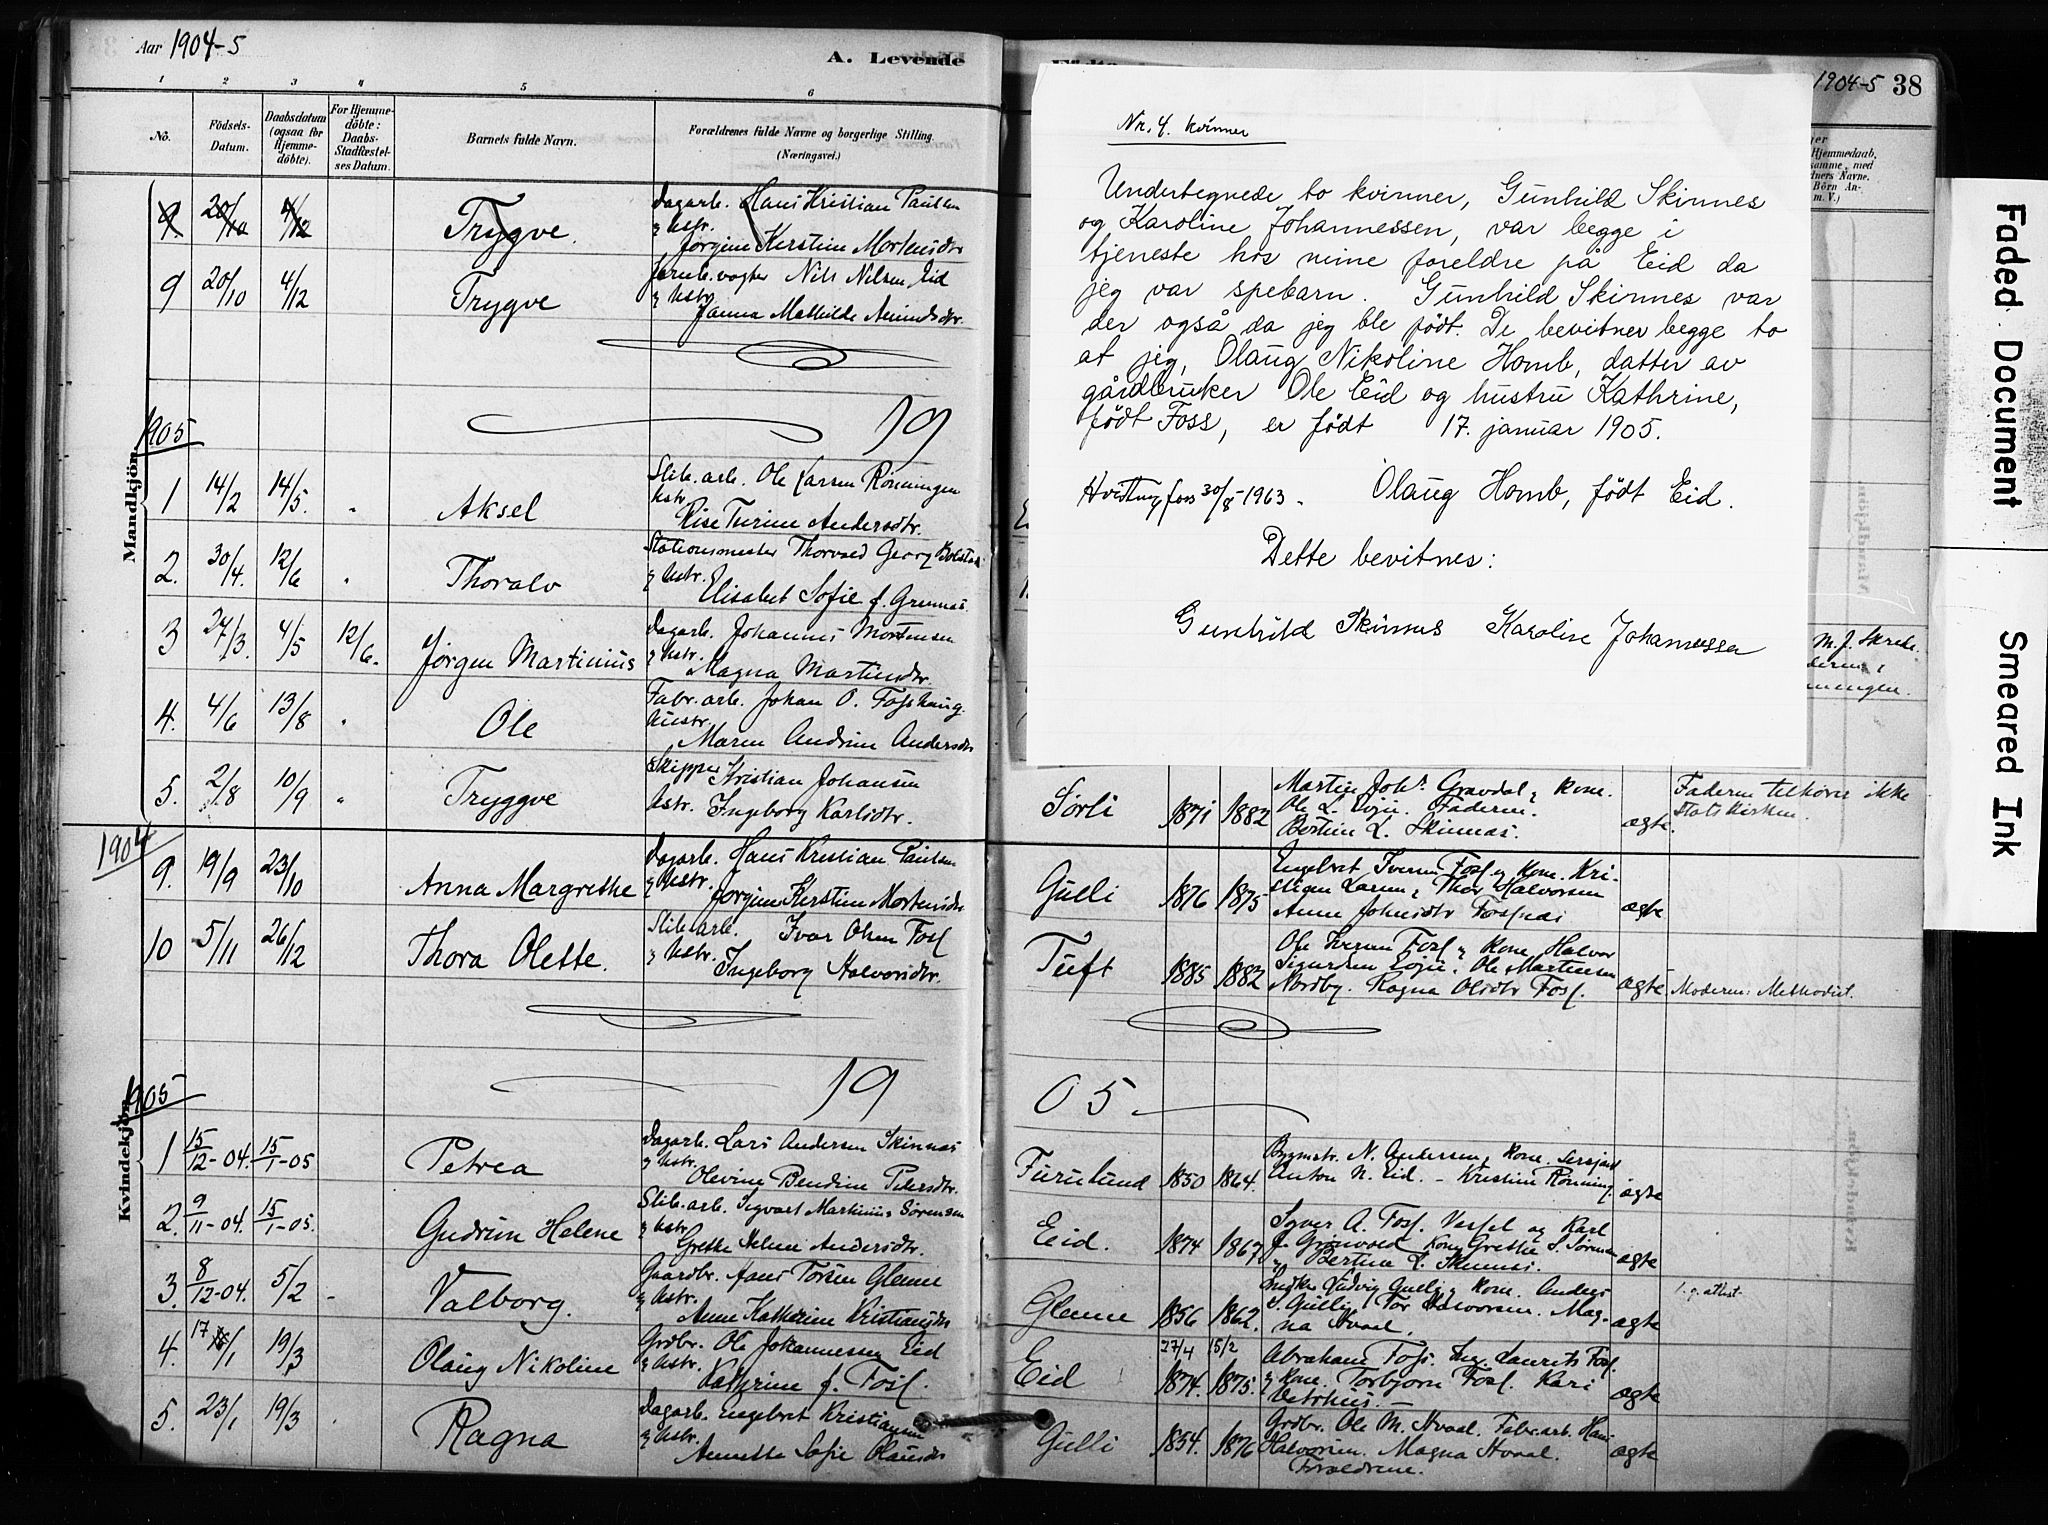 Aar 1904-5
A. Levende
1904-5 38
1 2 3 4 5 6
No.
Födsels-Datum.
Daabsdatum (ogsaa for Hjemmedöbte).
For Hjemmedöbte: Daabs-Stadfæstelses Datum.
Barnets fulde Navn.
Forældrenes fulde Navne og borgerlige Stilling.
(Næringsvei.)
Hjemmedaab,
samme, med
Börn An-
m. V.)
Nr. 4. kvinner
Undertegnede to kvinner, Gunhild Skinnes
og Karoline Johannessen, var begge i
tjeneste hos mine foreldre på Eid da
jeg var spebarn. Gunhild Skinnes var
der også da jeg ble født. De bevitner begge to
at jeg, Olaug Nikoline Homb, datter av
gårdbruker Ole Eid og hustru Kathrine,
født Foss, er født 17. januar 1905.
30/8-1963. Olaug Homb, født Eid.
Dette bevitnes:
Gunhild Skinnes Karoline Johannessen
Faded Document
Smeared Ink
Mandkjön
9. 20/10 4/12 Trygve. Dagarb. Hans Kristian Paulsen
& Hstr. Jørgine Kerstine Mortensdtr
9 20/10 4/12 Trygve Nils Nilsen Eid
& Hstr. Janna Mathilde
1905 19
1 14/2 14/5. " Aksel Slib.arb. Ole Larsen Rønningen
Hstr. Andersdtr.
2. 30/4. 12/6 " Thoralv Stationsmester Thorvald Georg
& Hstr. Elisabet Sofie f.
3 27/3. 4/5 12/6. Jørgen Martinius Dagarb. Johannes Mortensen
& Hstr. Magna Martinsdtr.
4. 4/6 13/8 " Ole Fabr.arb. Johan O. Fosshaug
Hustr. Maren Andrine Andersdtr
5. 2/8 10/9 " Tryggve Skipper Kristian Johansen
Hstr. Ingeborg Karlsdtr.
Sørli 1871 1882 Martin Joh. Gravdal & kone.
Ole L. Faderen.
L. Skinnas. ægte. Faderen tilhører ikke
Statskirken.
1904
9. 19/9 23/10 Anna Margrethe Dagarb. Hans Kristian Paulsen
& Hstr. Jørgine Kerstine Mortensdtr
Gulli 1876 1875 Engebret Iversen Foss & kone. Kri-
stian Larsen, Thor Halvorsen
Anne Johnsdtr Fossnæs ægte
10 5/11 26/12 Thora Olette. Slib.arb. Ivar Olsen Foss
& Hstr. Ingeborg Halvorsdtr.
Tuft 1885 1882 Ole Iversen Foss & kone Halvor
Sigurdsen Ole Martinsen
Nordby. Ragna Olsdtr Foss. ægte Moderen: Methodist.
1905 19 05
Kvindekjön
1 15/12-04. 15/1-05 Petrea Dagarb. Lars Andersen Skinnas
& Hstr. Olevine Bendine Petersdtr.
Furulund 1850 1864. N. Andersen & kone.
Anton N. Eid. - Kristine Rønning. ægte
2. 9/11-04. 15/1-05. Gudrun Helene Slib.arb. Sigvart Martinius Sørensen
& Hstr. Grethe Helene Andersdtr.
Eid. 1874 1867 A. Foss. og Karl
J. Grønvold Kone Grethe S. Sørensen
& Bertina L. Skinnas. ægte
3. 8/12-04. 5/2 - Valborg. Gaardbr. Hans Torsen Glenne
& Hstr. Anne Katherine Kristiansdtr
Glenne 1856 1862. Ludvig Gullig & kone. Anders
Gullig, Tor Halvorsen. Mag-
na Hvaal. ægte
4. 17/1 19/3 Olaug Nikoline Grdbr. Ole Johannessen Eid
& Hstr. Kathrine f. Foss.
Eid 27/4 1874. 15/2 1875. Abraham Foss. Laurits Foss.
& kone. Torbjørn Foss. Kari
ægte
5. 23/1 19/3 Ragna Dagarb. Engebret Kristiansen
& Hstr. Annette Sofie Olausdtr
Gulli 1854. 1876 Grdbr. Ole M. Hvaal. Fabr.arb. Hans
Halvorsen. Magna Hvaal.
Forældrene. ægte